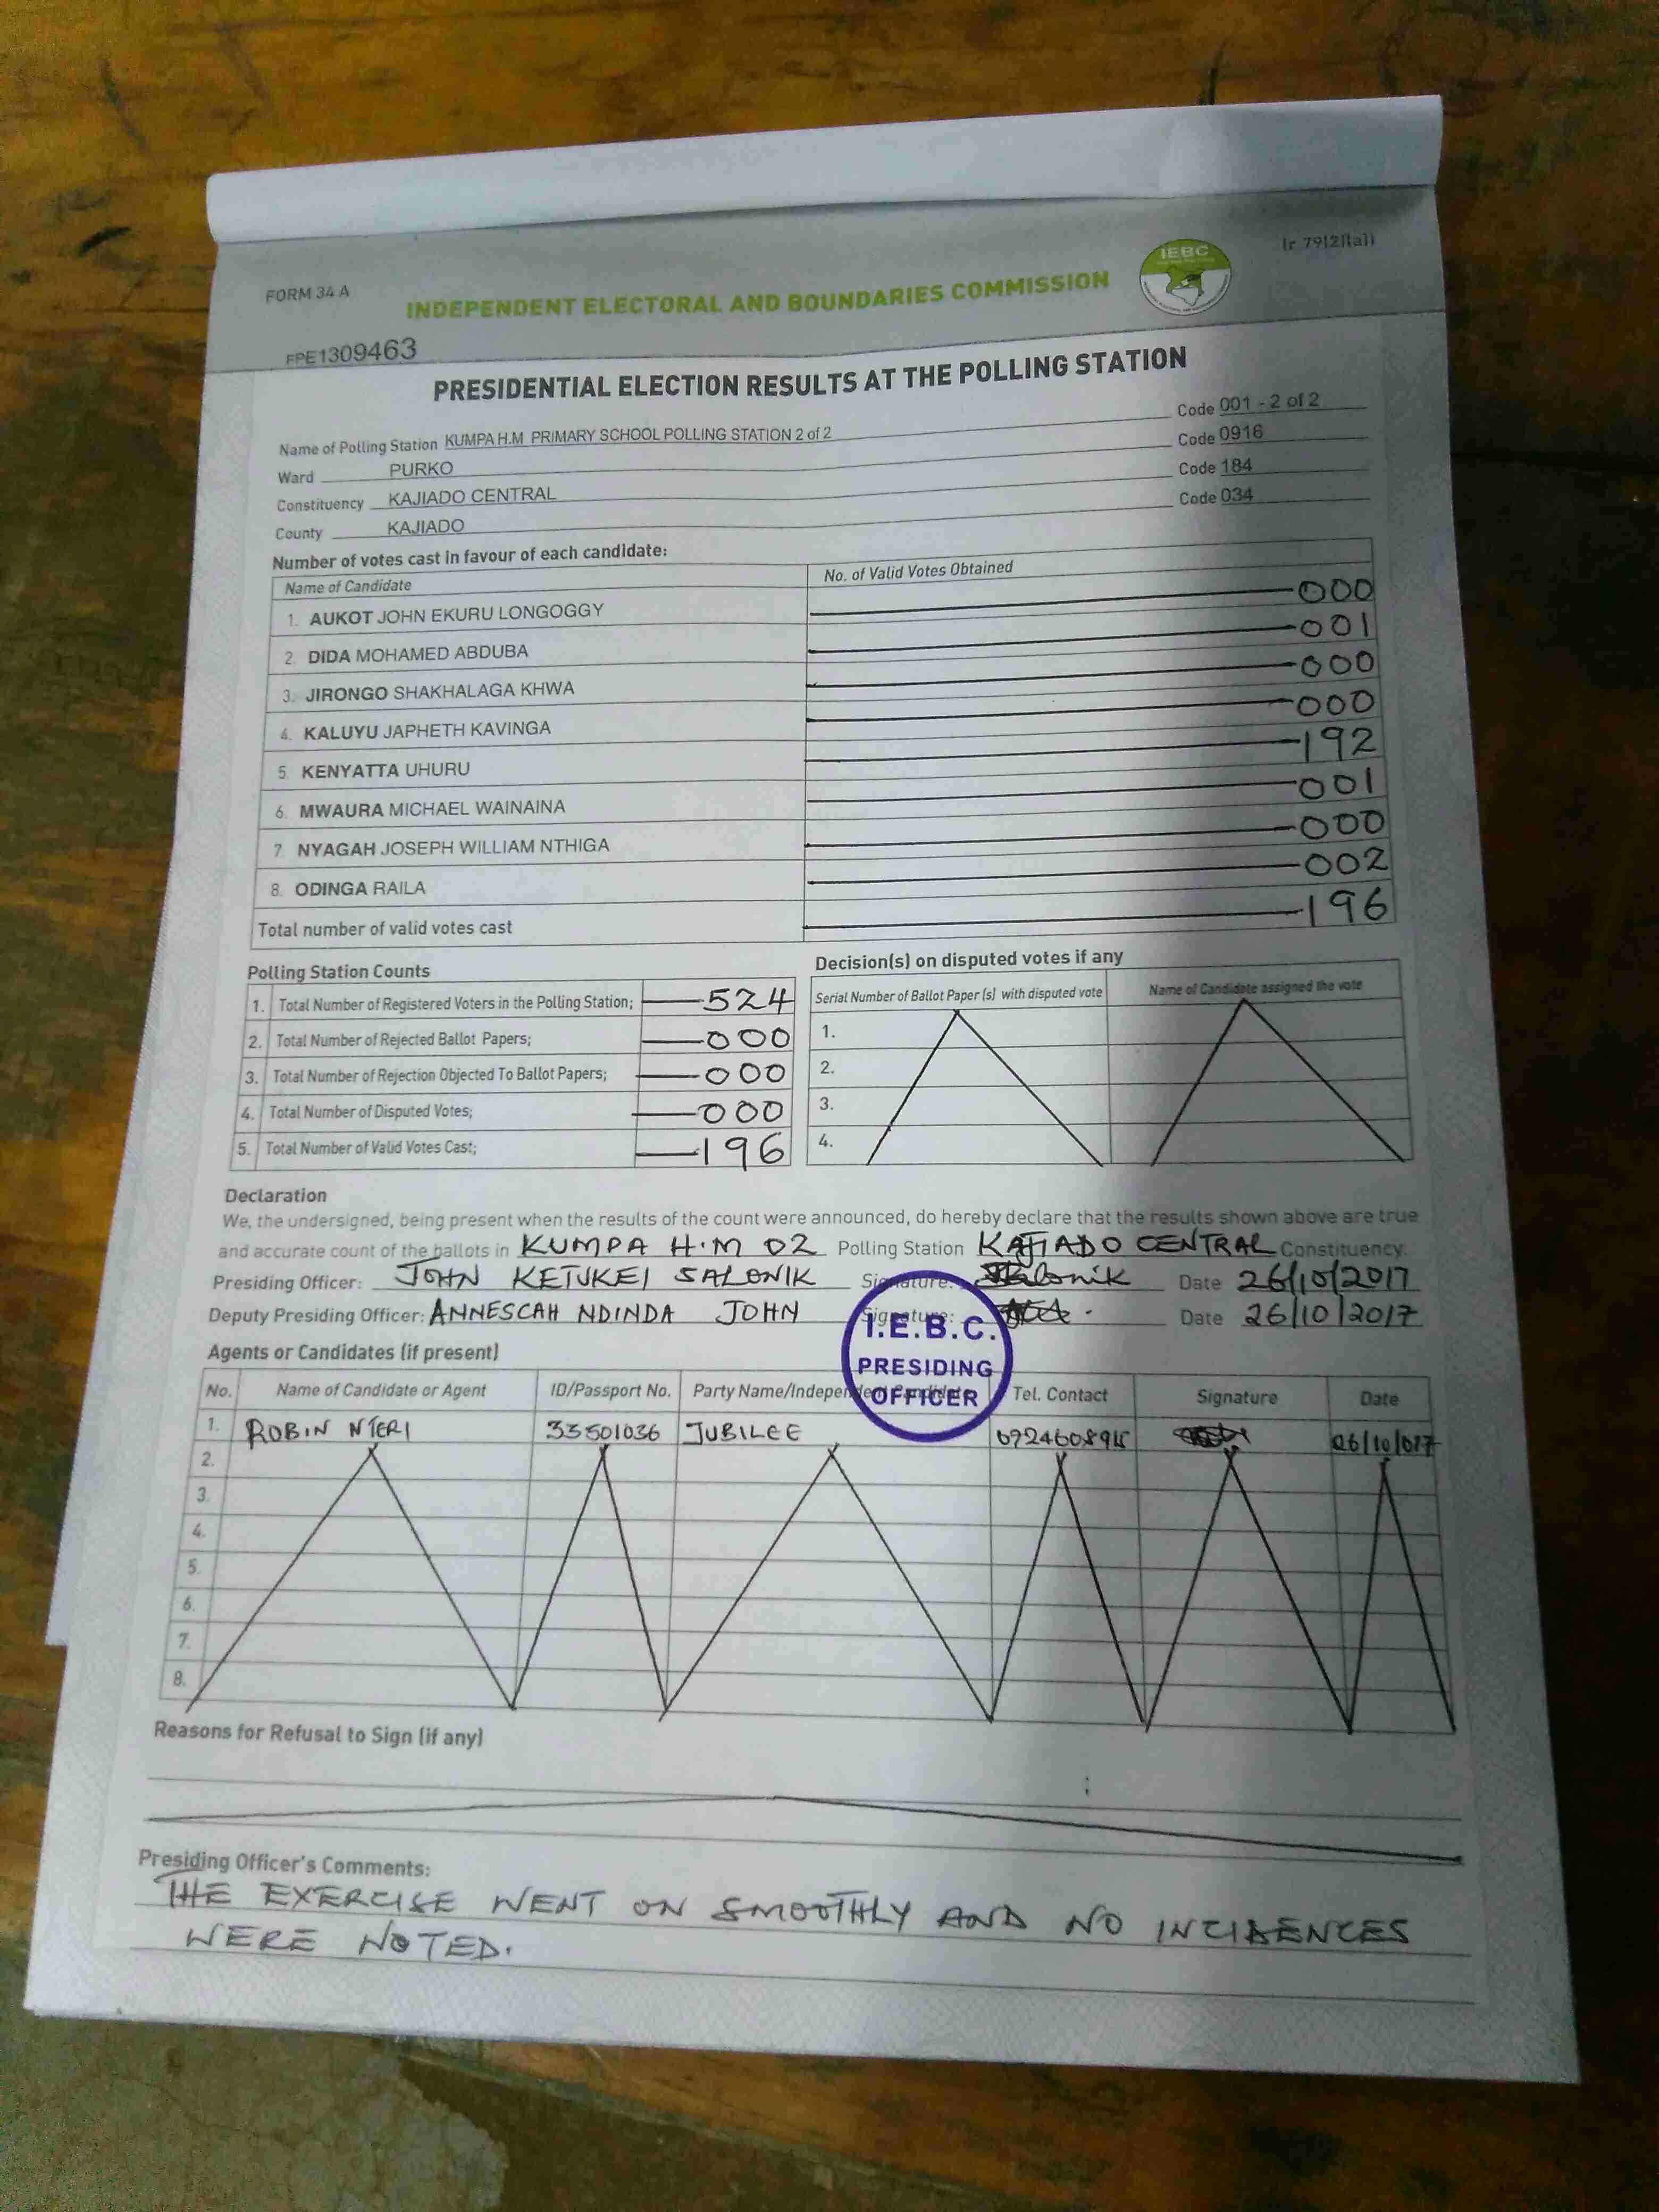 FORM 34 A
(r 79(2)(a))
IEBC
INDEPENDENT ELECTORAL AND BOUNDARIES COMMISSION
FPE1309463
PRESIDENTIAL ELECTION RESULTS AT THE POLLING STATION
Name of Polling Station KUMPA H.M PRIMARY SCHOOL POLLING STATION 2 of 2 Code 001 - 2 of 2
Ward PURKO Code 0916
Constituency KAJIADO CENTRAL Code 184
County KAJIADO Code 034
Number of votes cast in favour of each candidate:
Name of Candidate No. of Valid Votes Obtained
1. AUKOT JOHN EKURU LONGOGGY 000
2. DIDA MOHAMED ABDUBA 001
3. JIRONGO SHAKHALAGA KHWA 000
4. KALUYU JAPHETH KAVINGA 000
5. KENYATTA UHURU 192
6. MWAURA MICHAEL WAINAINA 001
7. NYAGAH JOSEPH WILLIAM NTHIGA 000
8. ODINGA RAILA 002
Total number of valid votes cast 196
Polling Station Counts
1. Total Number of Registered Voters in the Polling Station; 524
2. Total Number of Rejected Ballot Papers; 000
3. Total Number of Rejection Objected To Ballot Papers; 000
4. Total Number of Disputed Votes; 000
5. Total Number of Valid Votes Cast; 196
Decision(s) on disputed votes if any
Serial Number of Ballot Paper (s) with disputed vote Name of Candidate assigned the vote
1.
2.
3.
4.
Declaration
We, the undersigned, being present when the results of the count were announced, do hereby declare that the results shown above are true
and accurate count of the ballots in KUMPA H.M 02 Polling Station KAJIADO CENTRAL Constituency.
Presiding Officer: JOHN KETUKEI SALONIK Signature: Date 26/10/2017
Deputy Presiding Officer: ANNESCAH NDINDA JOHN Signature: Date 26/10/2017
I.E.B.C.
PRESIDING
OFFICER
Agents or Candidates (if present)
No. Name of Candidate or Agent ID/Passport No. Party Name/Independent Candidate Tel. Contact Signature Date
1. ROBIN NTERI 33501036 JUBILEE 26/10/017
2.
3.
4.
5.
6.
7.
8.
Reasons for Refusal to Sign (if any)
Presiding Officer's Comments:
THE EXERCISE WENT ON SMOOTHLY AND NO INCIDENCES
WERE NOTED.